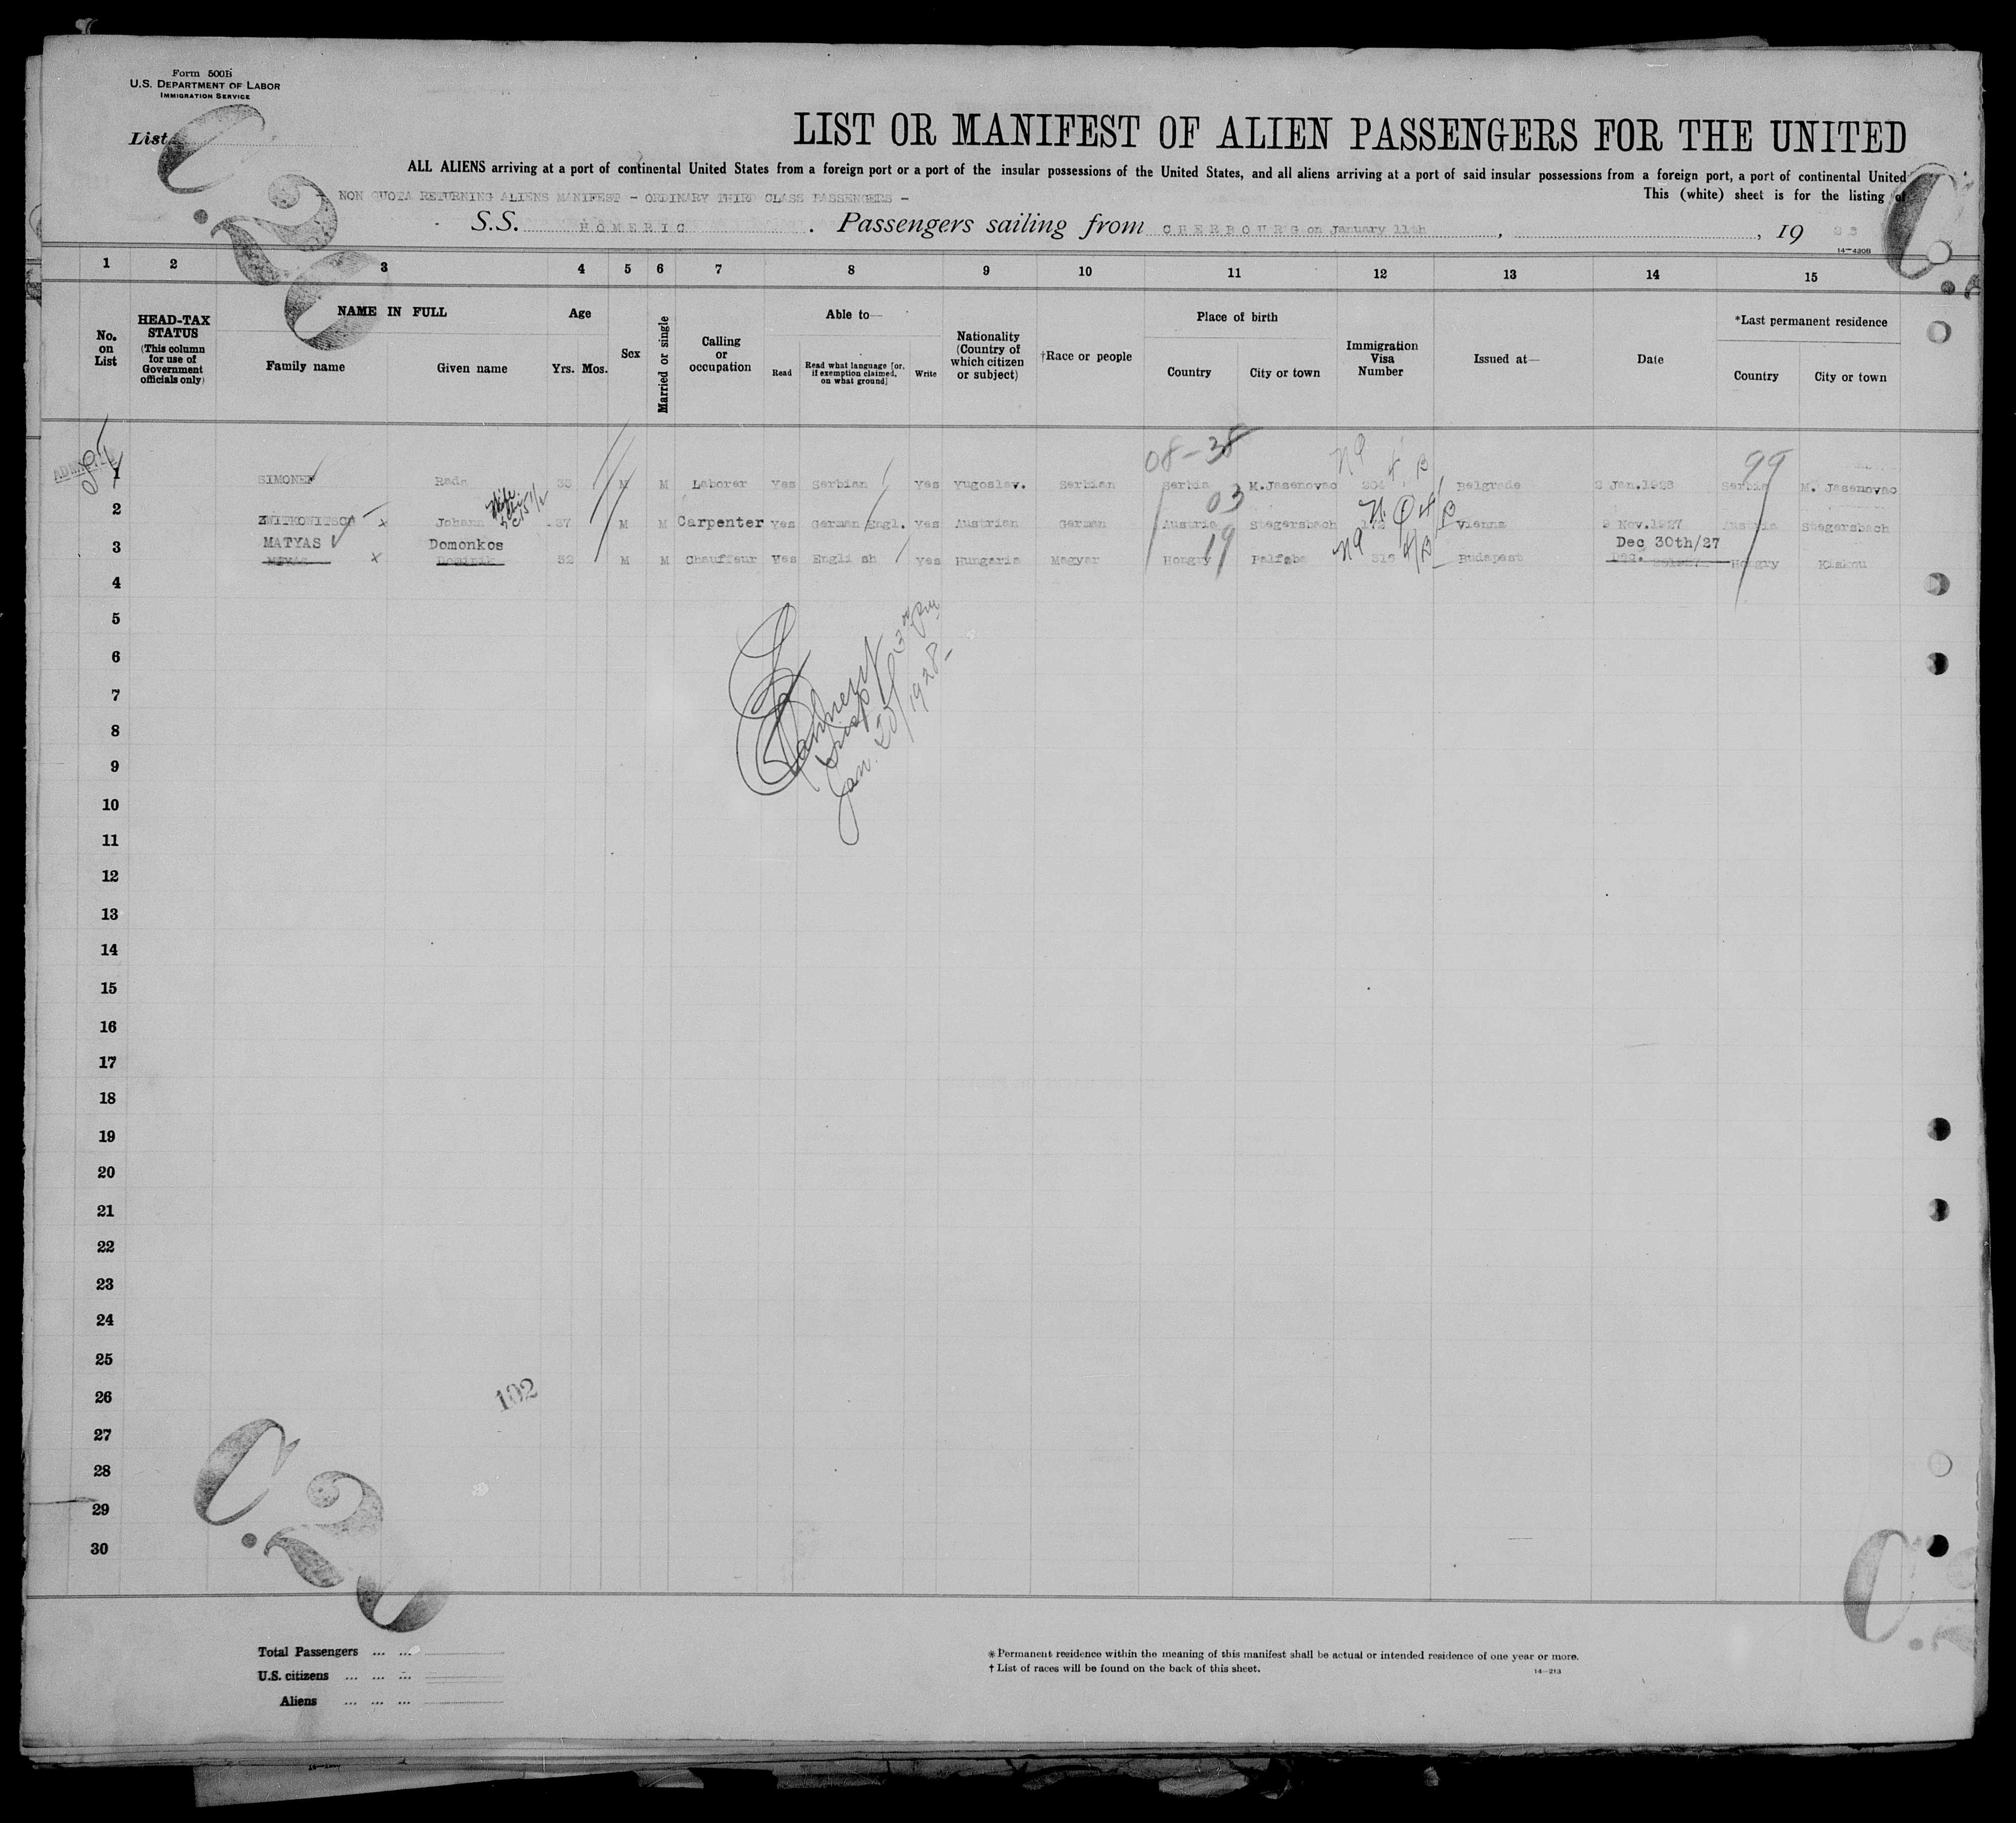 Form 500B
U.S. DEPARTMENT OF LABOR
IMMIGRATION SERVICE
List
LIST OR MANIFEST OF ALIEN PASSENGERS FOR THE UNITED
ALL ALIENS arriving at a port of continental United States from a foreign port or a port of the insular possessions of the United States, and all aliens arriving at a port of said insular possessions from a foreign port, a port of continental United
This (white) sheet is for the listing of
NON QUOTA RETURNING ALIENS MANIFEST - ORDINARY THIRD CLASS PASSENGERS -
S.S. HOMERIC. Passengers sailing from CHERBOURG on January 11th, , 19 28
14-4208
1 2 3 4 5 6 7 8 9 10 11 12 13 14 15
No. on List
HEAD-TAX STATUS (This column for use of Government officials only)
NAME IN FULL
Family name Given name
Age
Yrs. Mos.
Sex
Married or single
Calling or occupation
Able to—
Read Read what language [or, if exemption claimed, on what ground] Write
Nationality (Country of which citizen or subject)
†Race or people
Place of birth
Country City or town
Immigration Visa Number
Issued at—
Date
*Last permanent residence
Country City or town
08-38 99
ADMITTED
1 SIMONEF Rada 33 M M Laborer Yes Serbian Yes Yugoslav. Serbian Serbia M.Jasenovac Belgrade 2 Jan.1928 Serbia M. Jasenovac
03
2 ZWITKOWITSCH x Johann 37 M M Carpenter Yes German Engl. Yes Austrian German Austria Stegersbach Vienna Nov.1927 Austria Stegersbach
MATYAS Domonkos 19 Dec 30th/27
3 x 32 M M Chauffeur Yes English Yes Hungaria Magyar Hongry Palfaba Budapest Dec. Hongry
4
5
6
7
8
9
10
11
12
13
14
15
16
17
18
19
20
21
22
23
24
25
26
27
28
29
30
Jan. 20/1928-
102
C.20
C.20
Total Passengers ... ...
U.S. citizens ... ... ...
Aliens ... ... ...
* Permanent residence within the meaning of this manifest shall be actual or intended residence of one year or more.
† List of races will be found on the back of this sheet.
14-213